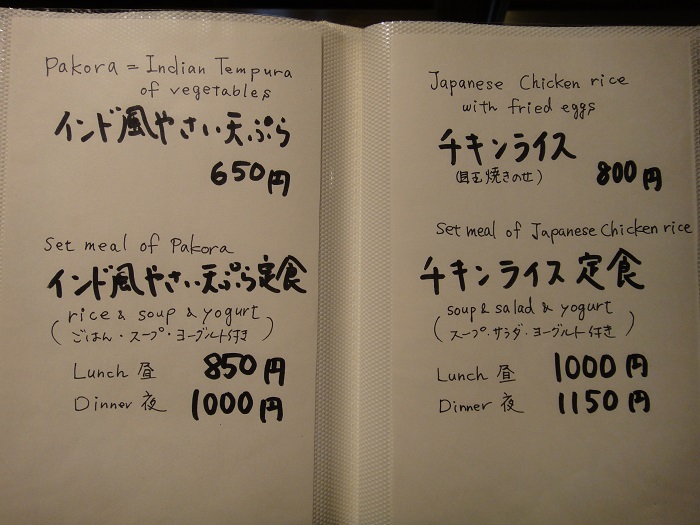 Pakora = Indian Tempura
of vegetables
インド風やさい天ぷら
650円
Set meal of Pakora
インド風やさい天ぷら定食
rice & soup & yogurt
(ごはん・スープ・ヨーグルト付き)
Lunch 昼 850円
Dinner 夜 1000円
Japanese Chicken rice
with fried eggs
チキンライス
(目玉焼きのせ) 800円
Set meal of Japanese Chicken rice
チキンライス定食
soup & salad & yogurt
(スープ・サラダ・ヨーグルト付き)
Lunch 昼 1000円
Dinner 夜 1150円